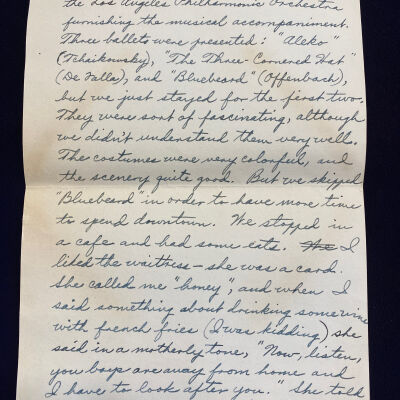 the Los Angeles Philharmonic Orchestra
furnishing the musical accompaniment.
Three ballets were presented: "Aleko"
(Tchaikowsky), "The Three-Cornered Hat"
(De Falla), and "Bluebeard" (Offenbach),
but we just stayed for the first two.
They were sort of fascinating, although
we didn't understand them very well.
The costumes were very colorful, and
the scenery quite good. But we skipped
"Bluebeard" in order to have more time
to spend downtown. We stopped in
a cafe and had some eats. I
liked the waitress – she was a card.
She called me "honey", and when I
said something about drinking some wine
with french fries (I was kidding) she
said in a motherly tone, "Now, listen,
you boys are away from home and
I have to look after you." She told